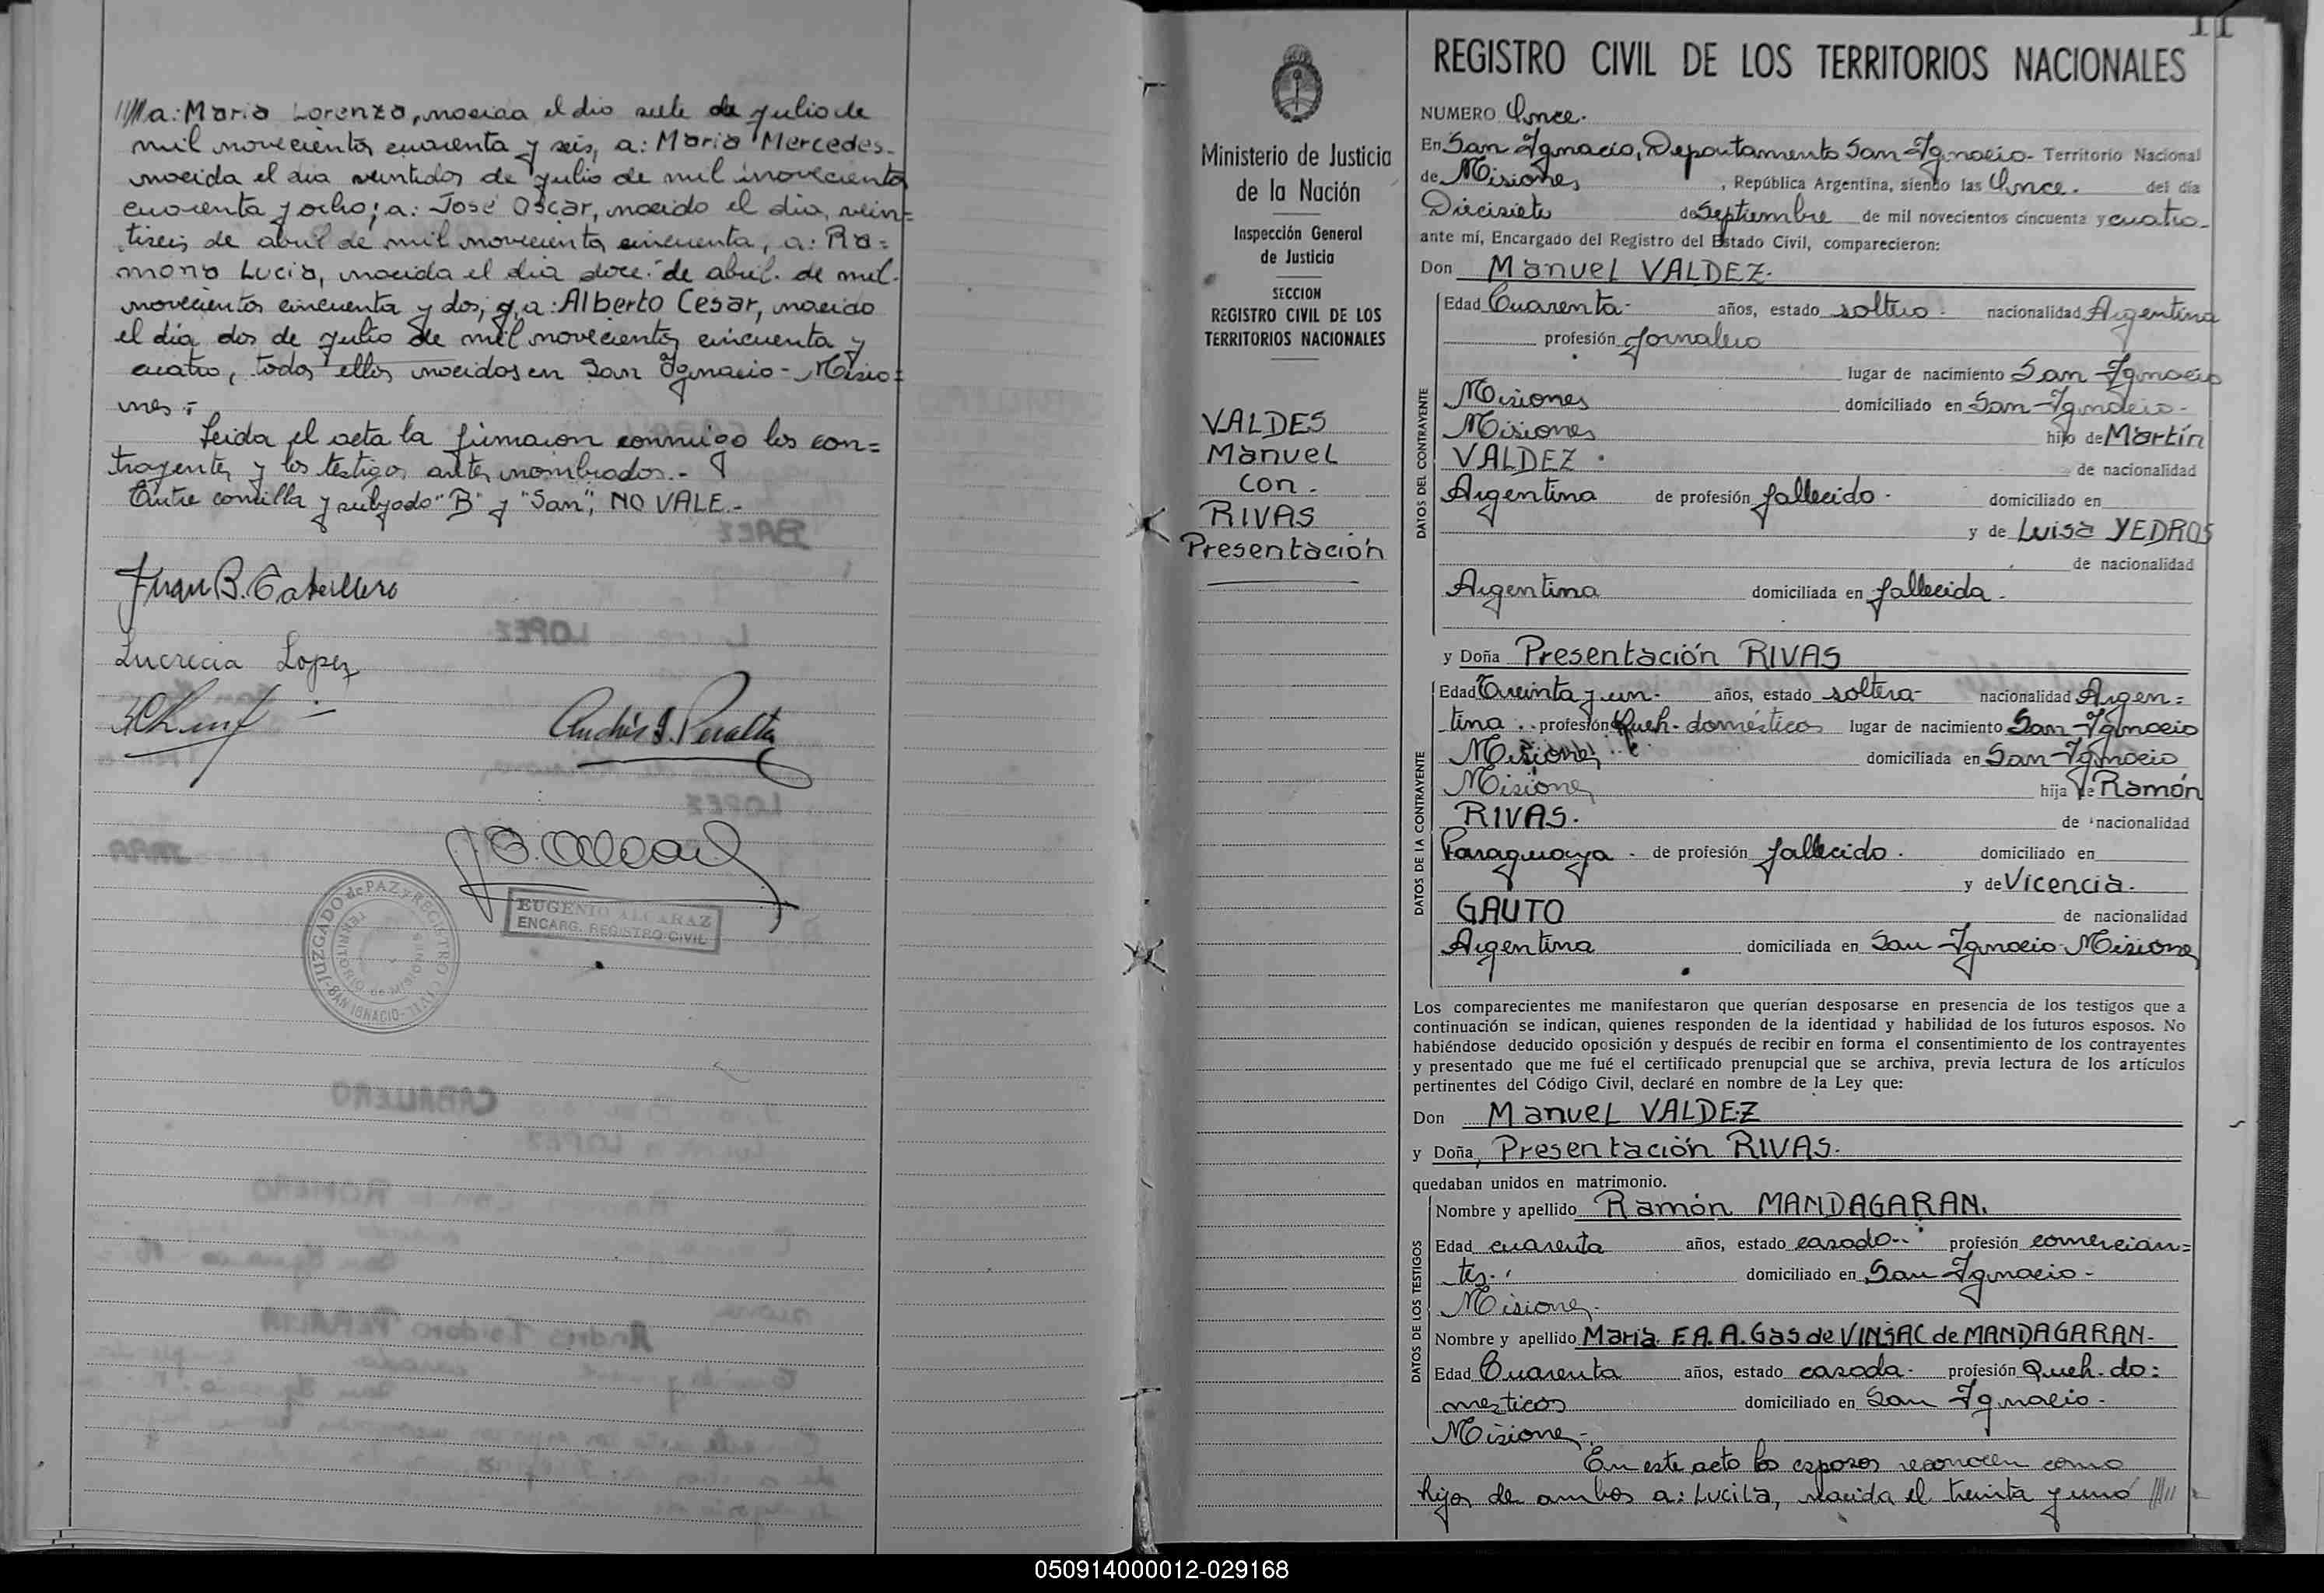 a: Maria Lorenza, nacida el dia siete de julio de
mil novecientos cuarenta y seis, a: Maria Mercedes-
nacida el dia veintidos de julio de mil novecientos
cuarenta y ocho; a: José Oscar, nacido el dia, vein=
tiseis de abril de mil novecientos cincuenta, a: Ra=
mona Lucia, nacida el dia doce de abril de mil
novecientos cincuenta y dos; y, a: Alberto César, nacido
el día dos de julio de mil novecientos cincuenta y
cuatro, todos ellos nacidos en San Ignacio - Misio=
nes.-
Leida el acta la firmaron conmigo los con=
trayentes y los testigos antes nombrados.-
Entre comilla y subyado "B" y "San", NO VALE.-
Juan B. Caballero
Lucrecia Lopez
Andrés I. Peralta
JUZGADO de PAZ y REGISTRO CIVIL - SAN IGNACIO -
TERRITORIO de MISIONES
EUGENIO ALCARAZ
ENCARG. REGISTRO CIVIL
Ministerio de Justicia
de la Nación
Inspección General
de Justicia
SECCION
REGISTRO CIVIL DE LOS
TERRITORIOS NACIONALES
VALDES
Manuel
Con.
RIVAS
Presentación
11
REGISTRO CIVIL DE LOS TERRITORIOS NACIONALES
NUMERO Once.
En San Ignacio, Departamento San Ignacio- Territorio Nacional
de Misiones, República Argentina, siendo las Once. del día
Diecisiete de Septiembre de mil novecientos cincuenta y cuatro-
ante mí, Encargado del Registro del Estado Civil, comparecieron:
Don Manuel VALDEZ.
DATOS DEL CONTRAYENTE
Edad Cuarenta- años, estado soltero nacionalidad Argentina
profesión Jornalero
lugar de nacimiento San Ignacio
Misiones domiciliado en San Ignacio-
Misiones hijo de Martín
VALDEZ. de nacionalidad
Argentina de profesión fallecido. domiciliado en
y de Luisa YEDROS
de nacionalidad
Argentina domiciliada en fallecida.
y Doña Presentación RIVAS
DATOS DE LA CONTRAYENTE
Edad Treinta y un- años, estado soltera- nacionalidad Argen=
tina profesión Queh. domésticos lugar de nacimiento San Ignacio
Misiones domiciliada en San Ignacio
Misiones hija de Ramón
RIVAS. de nacionalidad
Paraguaya. de profesión fallecido. domiciliado en
y de Vicencia.
GAUTO de nacionalidad
Argentina domiciliada en San Ignacio Misiones
Los comparecientes me manifestaron que querían desposarse en presencia de los testigos que a
continuación se indican, quienes responden de la identidad y habilidad de los futuros esposos. No
habiéndose deducido oposición y después de recibir en forma el consentimiento de los contrayentes
y presentado que me fué el certificado prenupcial que se archiva, previa lectura de los artículos
pertinentes del Código Civil, declaré en nombre de la Ley que:
Don Manuel VALDEZ
y Doña Presentación RIVAS.
quedaban unidos en matrimonio.
DATOS DE LOS TESTIGOS
Nombre y apellido Ramón MANDAGARAN.
Edad cuarenta años, estado casado- profesión comercian=
tes. domiciliado en San Ignacio-
Misiones-
Nombre y apellido María F.A.A. Gas de VINSAC de MANDAGARAN-
Edad Cuarenta años, estado casada- profesión Queh. do=
mesticos domiciliado en San Ignacio-
Misiones-
En este acto los esposos reconocen como
hijos de ambos a: Lucila, nacida el treinta y uno
050914000012-029168